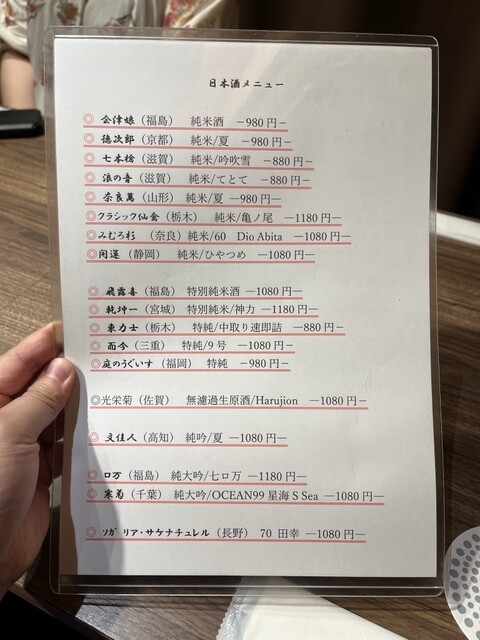 日本酒メニュー
◎ 会津娘（福島） 純米酒 －980円－
◎ 徳次郎（京都） 純米/夏 －980円－
◎ 七本槍（滋賀） 純米/吟吹雪 －880円－
◎ 浪の音（滋賀） 純米/てとて －880円－
◎ 奈良萬（山形） 純米/夏 ―980円―
◎クラシック仙禽（栃木） 純米/亀ノ尾 ―1180円―
◎みむろ杉 （奈良）純米/60 Dio Abita ―1080円―
◎開運（静岡） 純米/ひやつめ ―1080円―
◎ 飛露喜（福島） 特別純米酒 ―1080円―
◎ 乾坤一（宮城） 特別純米/神力 ―1180円―
◎ 東力士（栃木） 特純/中取り速即詰 －880円－
◎ 而今（三重） 特純/9号 ―1080円―
◎庭のうぐいす（福岡） 特純 －980円－
◎光栄菊（佐賀） 無濾過生原酒/Harujion ―1080円－
◎ 文佳人（高知） 純吟/夏 ―1080円―
◎ ロ万（福島） 純大吟/七ロ万 ―1180円―
◎ 寒菊（千葉） 純大吟/OCEAN99 星海 S Sea ―1080円―
◎ ソガ リア・サケナチュレル（長野） 70 田幸 ―1080円―